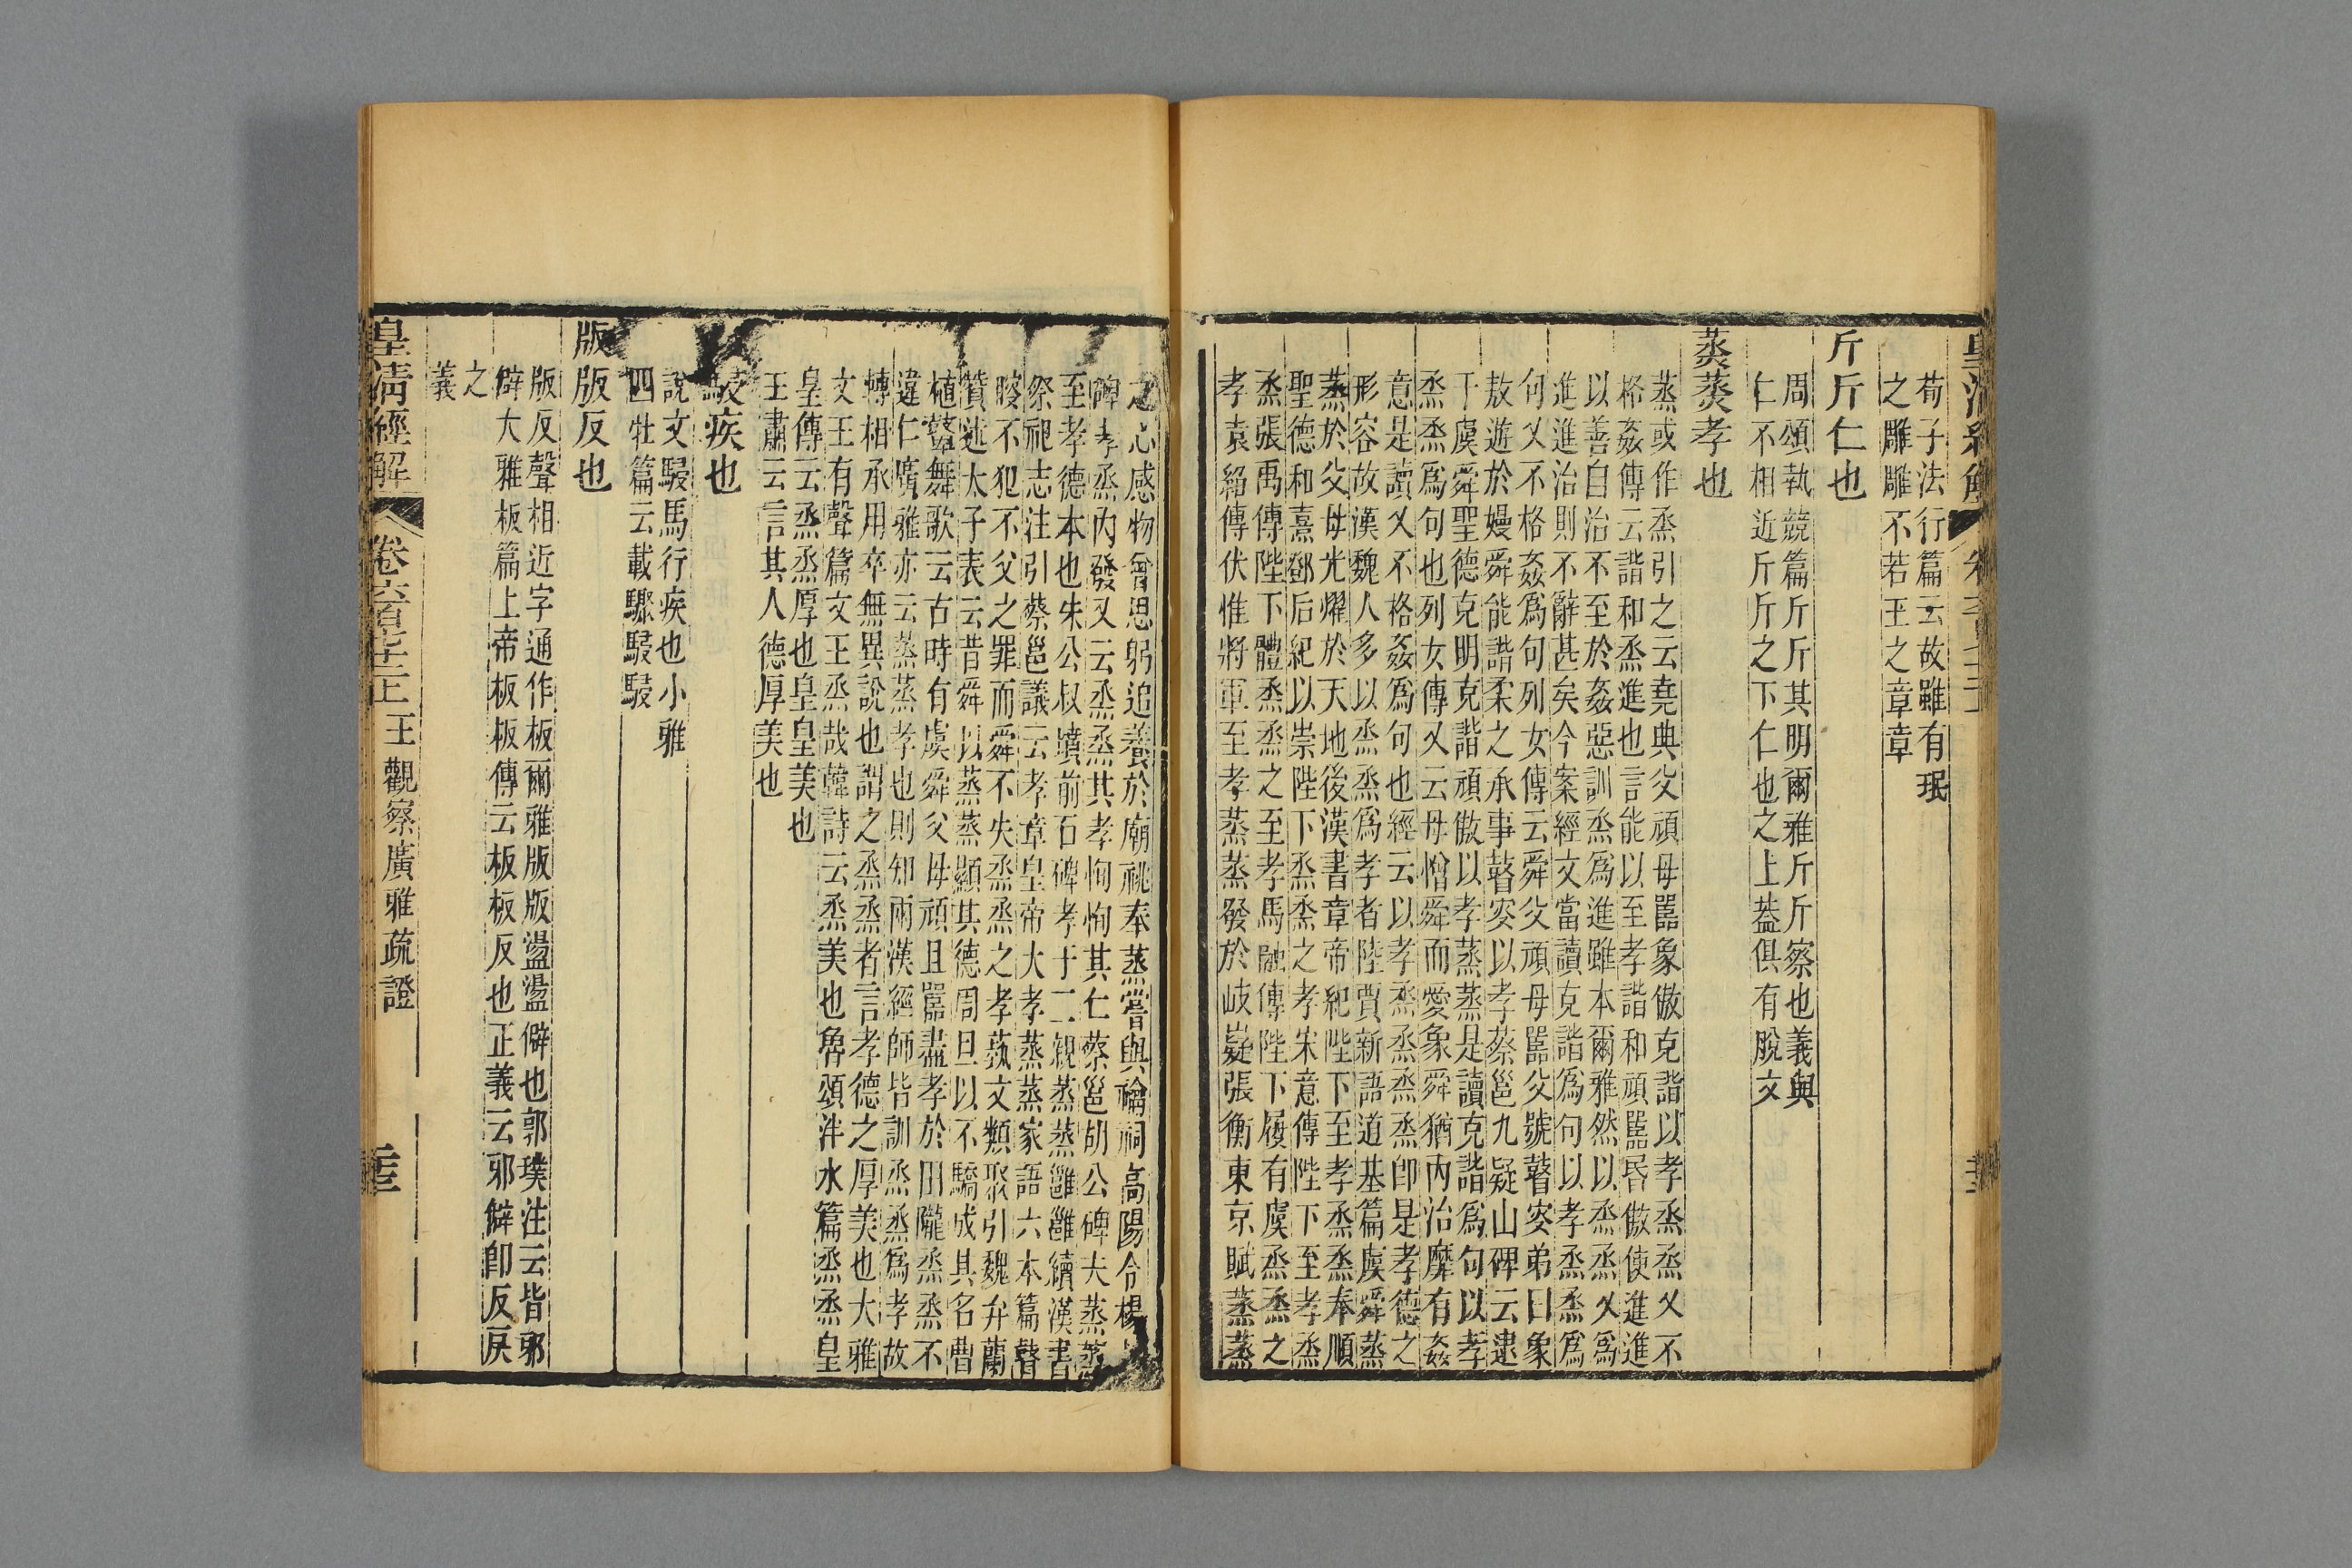 荀子法行篇云故雖有珉
之雕雕不若玉之章章
斤斤仁也
周頌執競篇斤斤其明爾雅斤斤察也義與
仁不相近斤斤之下仁也之上葢俱有脫文
蒸蒸孝也
蒸或作烝引之云堯典父頑母嚚象傲克諧以孝烝烝乂不
格姦傳云諧和烝進也言能以至孝諧和頑嚚昬傲使進進
以善自治不至於姦惡訓烝爲進雖本爾雅然以烝烝乂爲
進進治則不辭甚矣今案經文當讀克諧爲句以孝烝烝爲
句乂不格姦爲句列女傳云舜父頑母嚚父號瞽叟弟曰象
敖遊於嫚舜能諧柔之承事瞽叟以孝蔡邕九疑山碑云逮
于虞舜聖德克明克諧頑傲以孝蒸蒸是讀克諧爲句以孝
烝烝爲句也列女傳又云母憎舜而愛象舜猶內治靡有姦
意是讀乂不格姦爲句也經云以孝烝烝烝烝卽是孝德之
形容故漢魏人多以烝烝爲孝者陸賈新語道基篇虞舜蒸
蒸於父母光燿於天地後漢書章帝紀陛下至孝烝烝奉順
聖德和熹鄧后紀以崇陛下烝烝之孝宋意傳陛下至孝烝
烝張禹傳陛下體烝烝之至孝馬融傳陛下履有虞烝烝之
孝袁紹傳伏惟將軍至孝蒸蒸發於岐嶷張衡東京賦蒸蒸
之心感物曾思躬追養於廟祧奉蒸嘗與禴祠高陽令楊
碑孝烝內發又云烝烝其孝恂恂其仁蔡邕胡公碑夫蒸蒸
至孝德本也朱公叔墳前石碑孝于二親蒸蒸雝雝續漢書
祭祀志注引蔡邕議云孝章皇帝大孝蒸蒸家語六本篇瞽
瞍不犯不父之罪而舜不失烝烝之孝蓺文類聚引魏弁蘭
贊述太子表云昔舜以蒸蒸顯其德周旦以不驕成其名曹
植鼙舞歌云古時有虞舜父母頑且嚚盡孝於田隴烝烝不
違仁廣雅亦云蒸蒸孝也則知兩漢經師皆訓烝烝爲孝故
轉相承用卒無異說也謂之烝烝者言孝德之厚美也大雅
文王有聲篇文王烝哉韓詩云烝美也魯頌泮水篇烝烝皇
皇傳云烝烝厚也皇皇美也
王肅云言其人德厚美也
駸疾也
說文駸馬行疾也小雅
四牡篇云載驟駸駸
版版反也
版反聲相近字通作板爾雅版版盪盪僻也郭璞注云皆邪
僻大雅板篇上帝板板傳云板板反也正義云邪僻卽反戾
之
義
皇清經解
卷六百七十三王觀察廣雅疏證